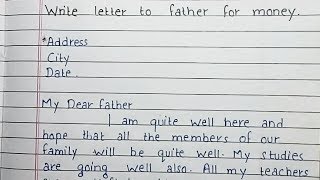 Write letter to father for money.
*Address
City
Date.
My Dear father
I am quite well here and
hope that all the members of our
family will be quite well. My studies
are going well also. All my teachers